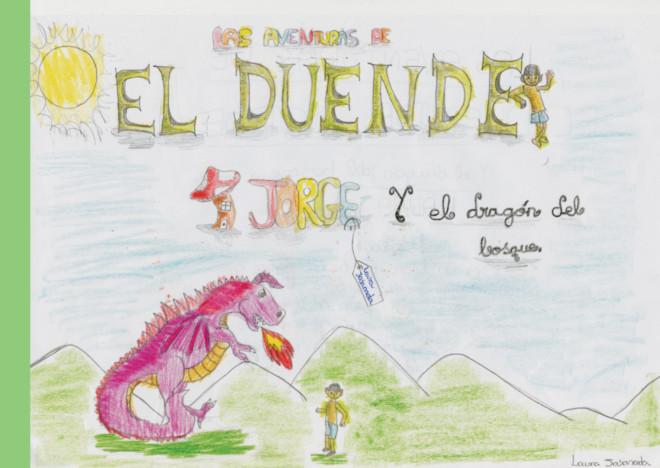 LAS AVENTURAS DE
EL DUENDE
JORGE Y el dragón del
bosque.
Laura
Laura